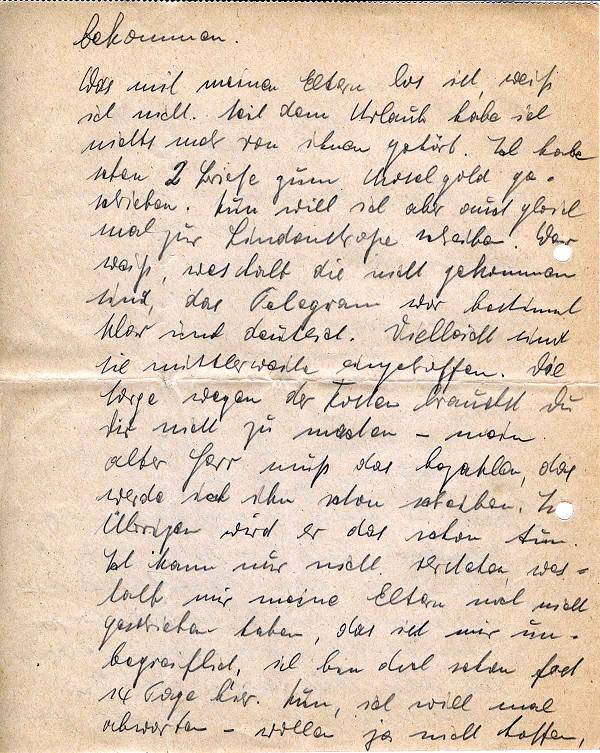 bekommen.
Was mit meinen Eltern los ist, weiß
ich nicht. Seit dem Urlaub habe ich
nichts mehr von ihnen gehört. Ich habe
schon 2 Briefe zum Moselgold ge-
schrieben. Nun will ich aber auch gleich
mal zur Lindenstraße schreiben. Wer
weiß, weshalb die nicht gekommen
sind, das Telegram war bestimmt
klar und deutlich. Vielleicht sind
sie mittlerweile eingetroffen. Die
Sorge wegen der Kosten brauchst Du
Dir nicht zu machen – mein
alter Herr muß das bezahlen, das
werde ich ihm schon schreiben. Im
Übrigen wird er das schon tun.
Ich kann nur nicht verstehen, wes=
halb mir meine Eltern noch nicht
geschrieben haben, das ist mir un-
begreiflich, ich bin doch schon fast
14 Tage hier. Nun, ich will mal
abwarten – wollen ja nicht hoffen,